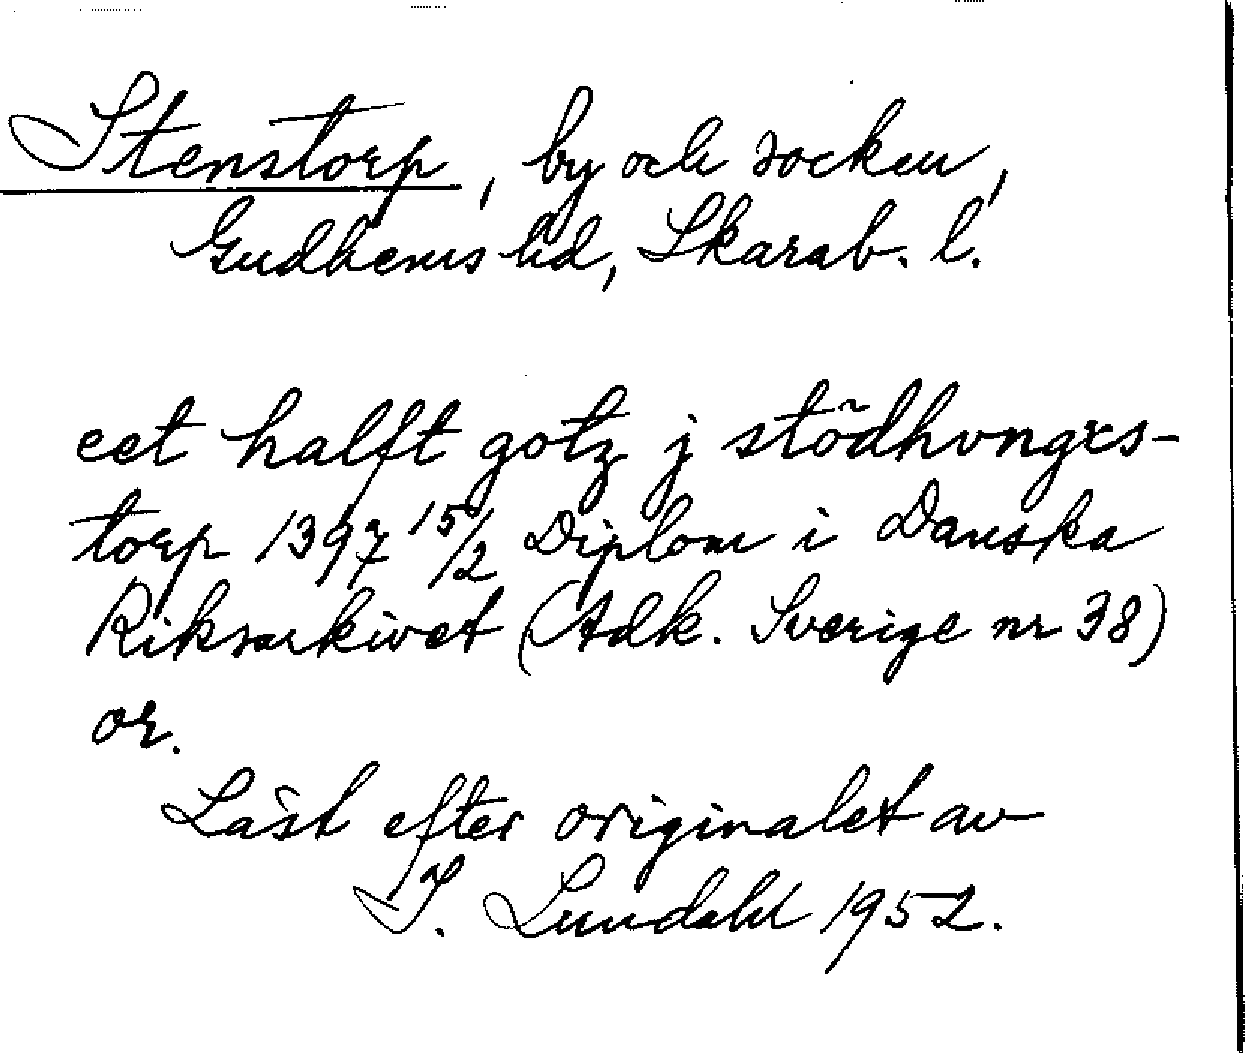 Stenstorp, by och socken,
Gudhems hd, Skarab. l.
eet halfft gotz j stödhvngxs-
torp 1397 15/2 Diplom i Danska
Riksarkivet (Adk. Sverige nr 38)
or.
Läst efter originalet av
I. Lundahl 1952.